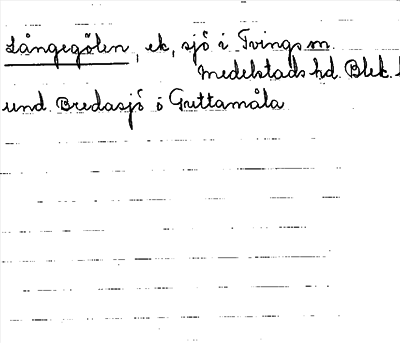 Långegölen, ek, sjö i Tvings sn.
Medelstads hd. Blek. l
und. Bredasjö o Guttamåla